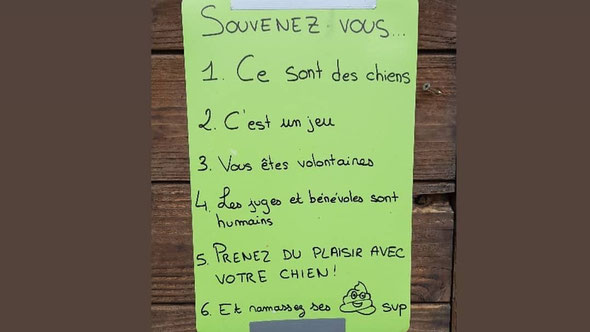 SOUVENEZ VOUS...
1. Ce sont des chiens
2. C'est un jeu
3. Vous êtes volontaires
4. Les juges et bénévoles sont
humains
5. PRENEZ DU PLAISIR AVEC
VOTRE CHIEN!
6. Et ramassez ses 💩 SVP